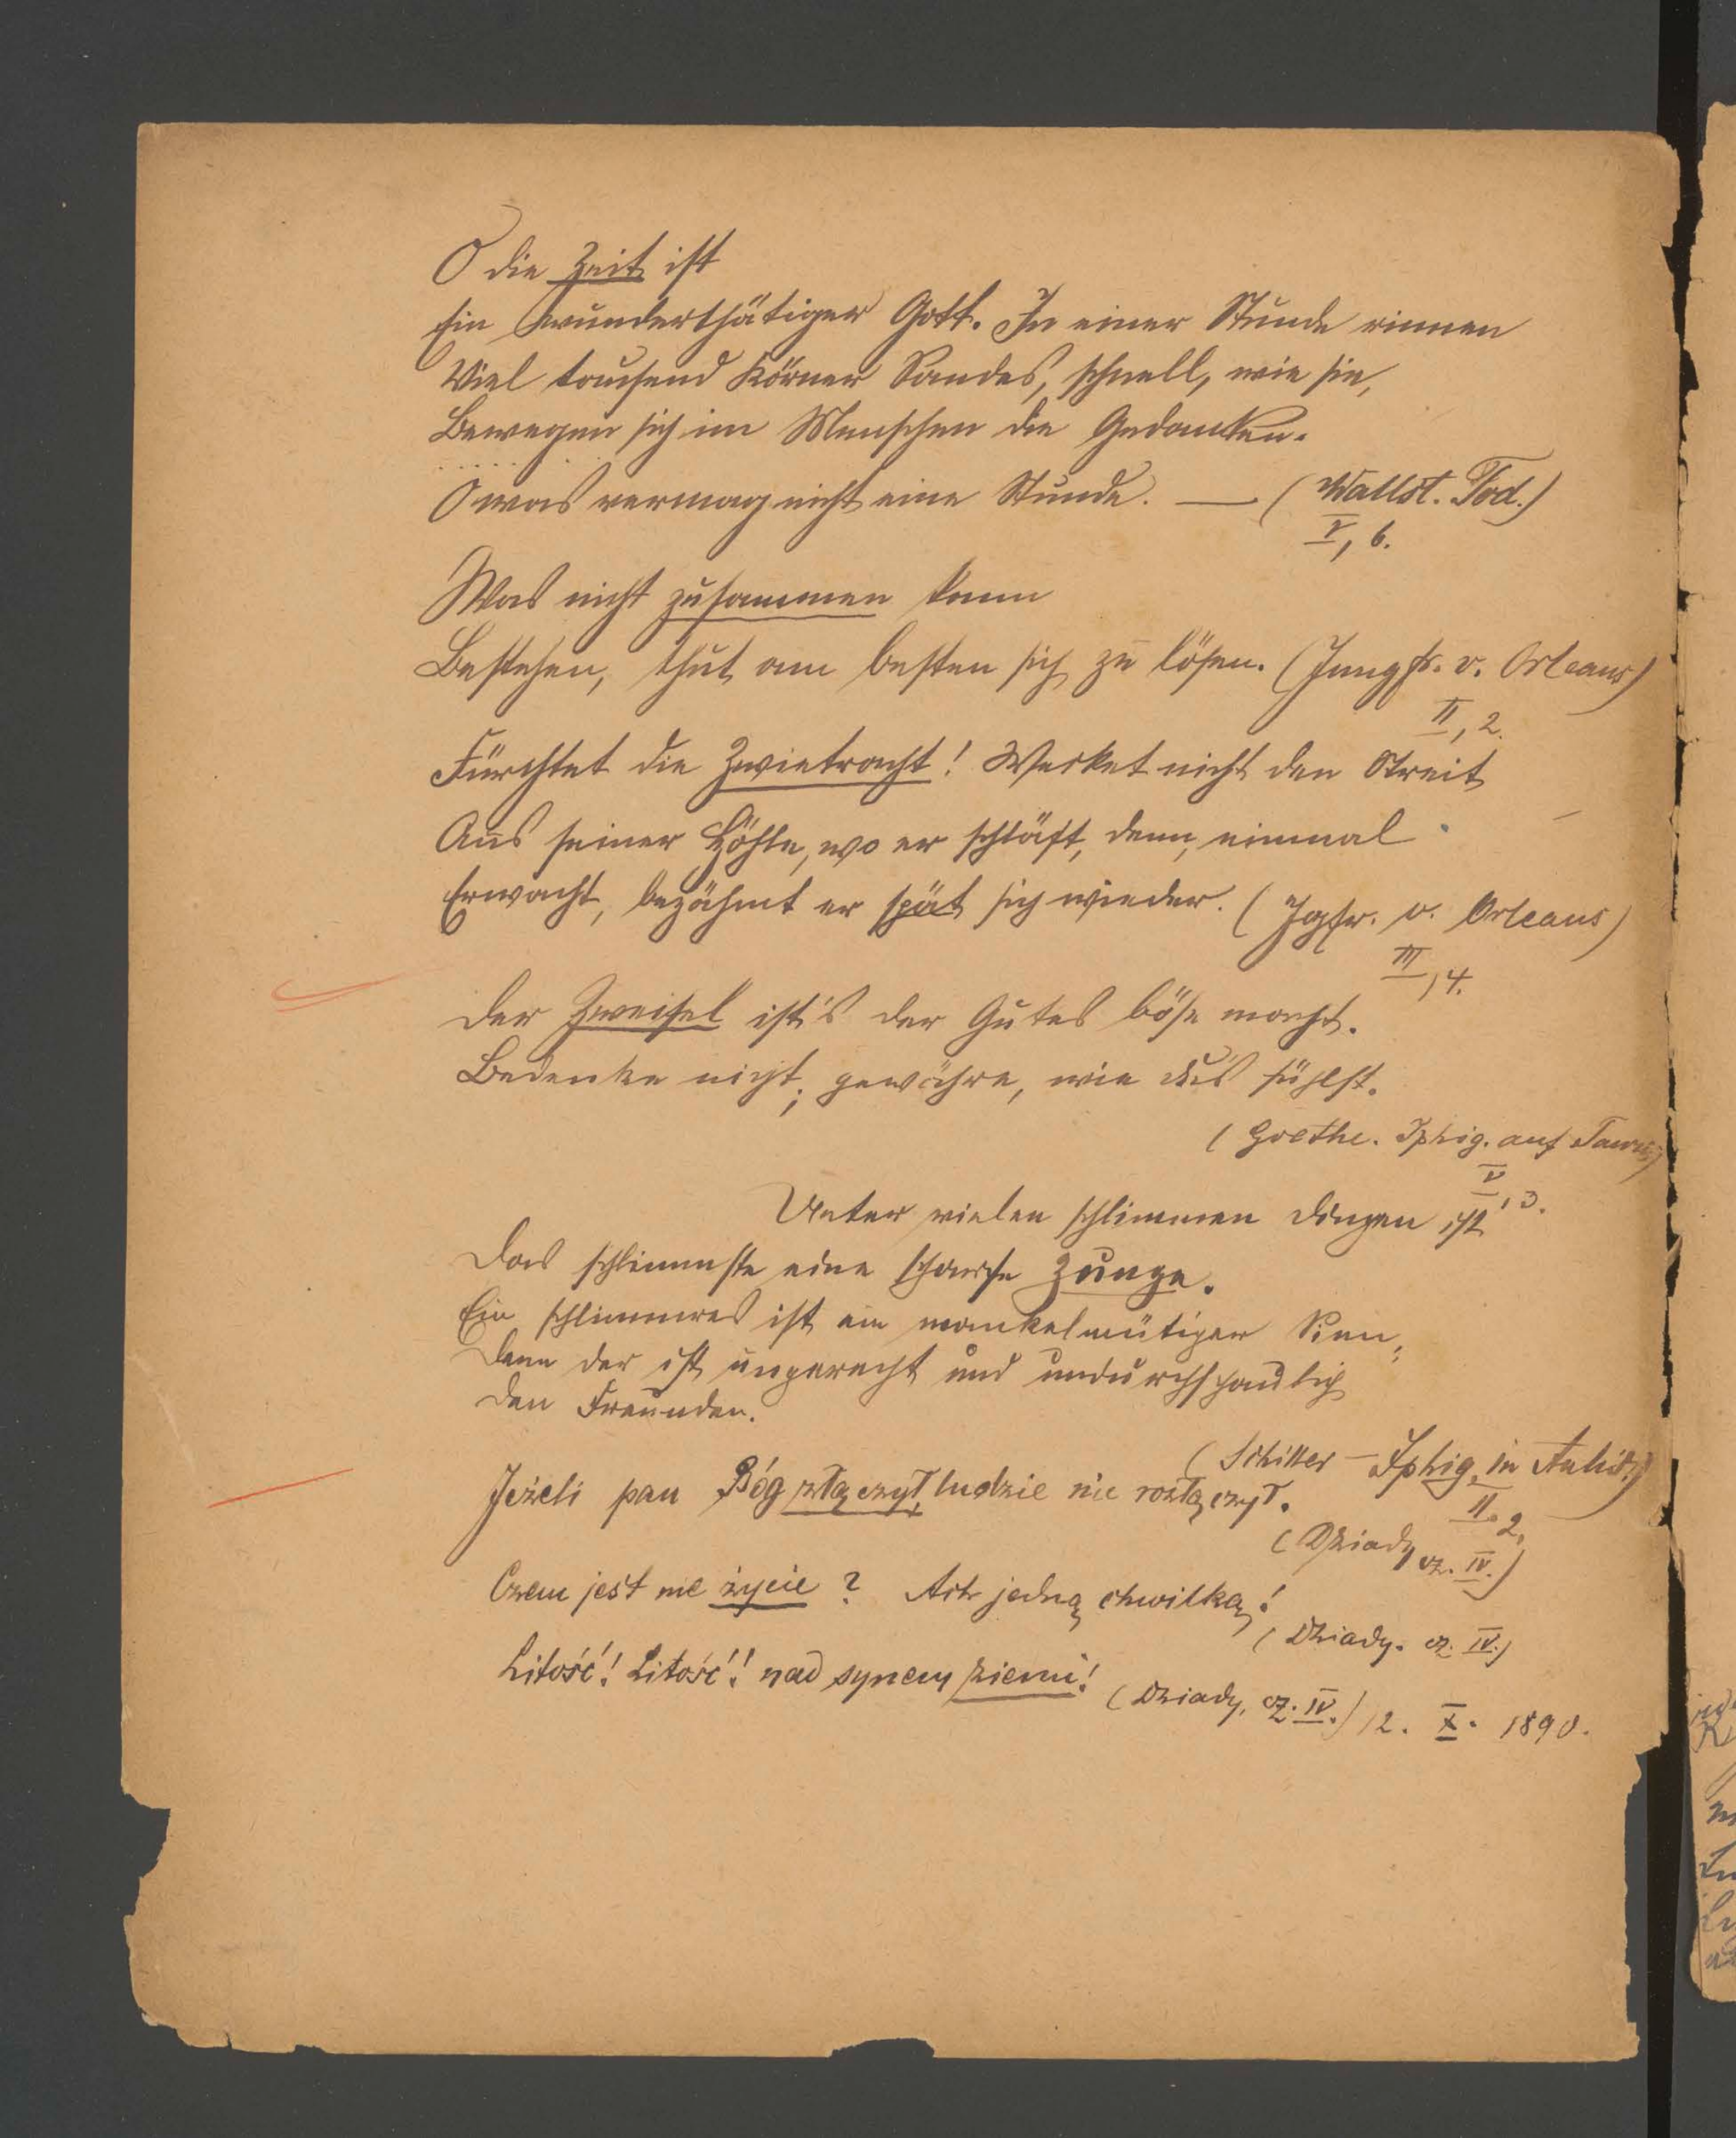 O die Zeit ist
Ein wunderthätiger Gott. In einer Stunde rinnen
Viel tausend Körner Sandes, schnell, wie sie,
Bewegen sich im Menschen die Gedanken.
. . . . . . .
O was vermag nicht eine Stunde. — (Wallst. Tod.)
V, 6.
Was nicht zusammen kann
Bestehen, thut am besten sich zu lösen. (Jungfr. v. Orleans)
II, 2.
Fürchtet die Zwietracht! Wecket nicht den Streit
Aus seiner Höhle, wo er schläft, denn, einmal
Erwacht, bezähmt er spät sich wieder. (Jgfr. v. Orleans)
III, 4.
Der Zweifel ist's der Gutes böse macht.
Bedenke nicht; gewähre, wie du's fühlst.
(Goethe. Iphig. auf Tauris)
V, 3.
Unter vielen schlimmen Dingen ist
Das schlimmste eine scharfe Zunge.
Ein schlimmres ist ein wankelmütiger Sinn;
Denn der ist ungerecht und undurchschaulich
Den Freunden.
(Schiller – Iphig. in Aulis)
II. 2.
Jeżeli pan Bóg złączył, ludzie nie rozłączył.
(Dziady cz. IV.)
Czem jest me życie? Ach jedną chwilką!
(Dziady. cz. IV.)
Litość! Litość! nad synem ziemi!
(Dziady, cz. IV.) 12. X. 1890.